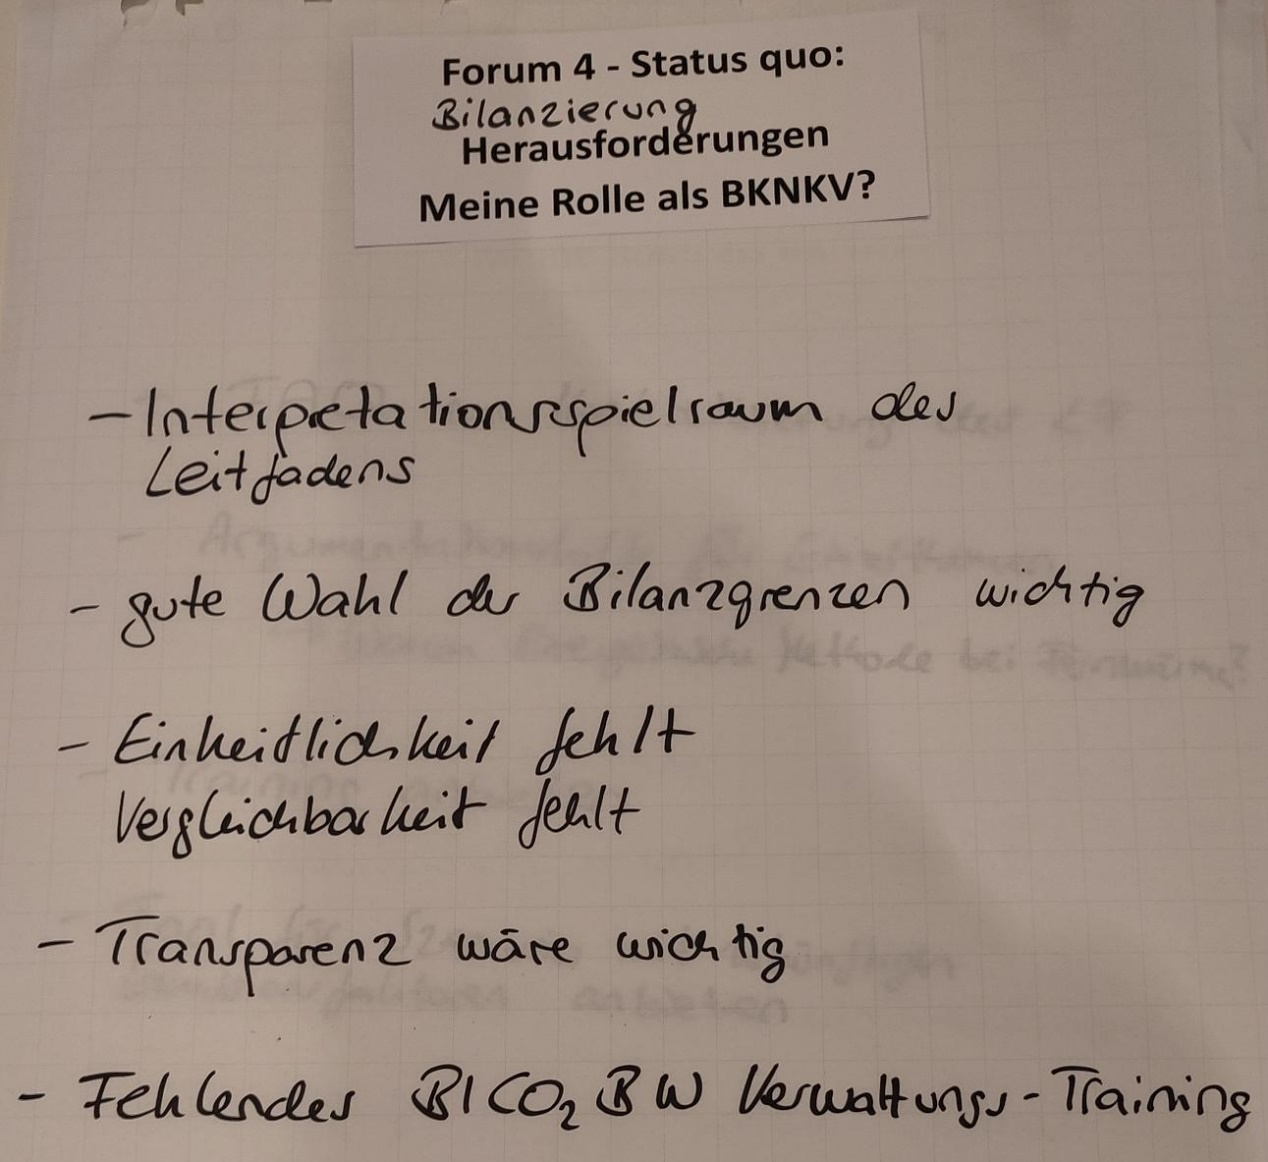 Forum 4 - Status quo:
Bilanzierung
Herausforderungen
Meine Rolle als BKNKV?
- Interpretationsspielraum des
Leitfadens
- gute Wahl der Bilanzgrenzen wichtig
- Einheitlichkeit fehlt
Vergleichbarkeit fehlt
- Transparenz wäre wichtig
- Fehlendes BICO₂BW Verwaltungs-Training